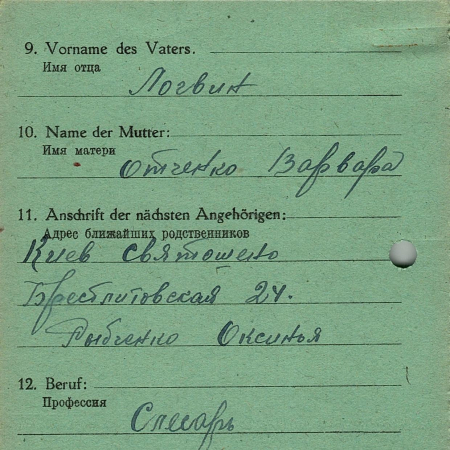 9. Vorname des Vaters.
Имя отца
Логвин
10. Name der Mutter:
Имя матери
Отченко Варвара
11. Anschrift der nächsten Angehörigen:
Адрес ближайших родственников
Киев святошено
Брестлитовская 24.
Рыбченко Оксинья
12. Beruf:
Профессия
Слесарь